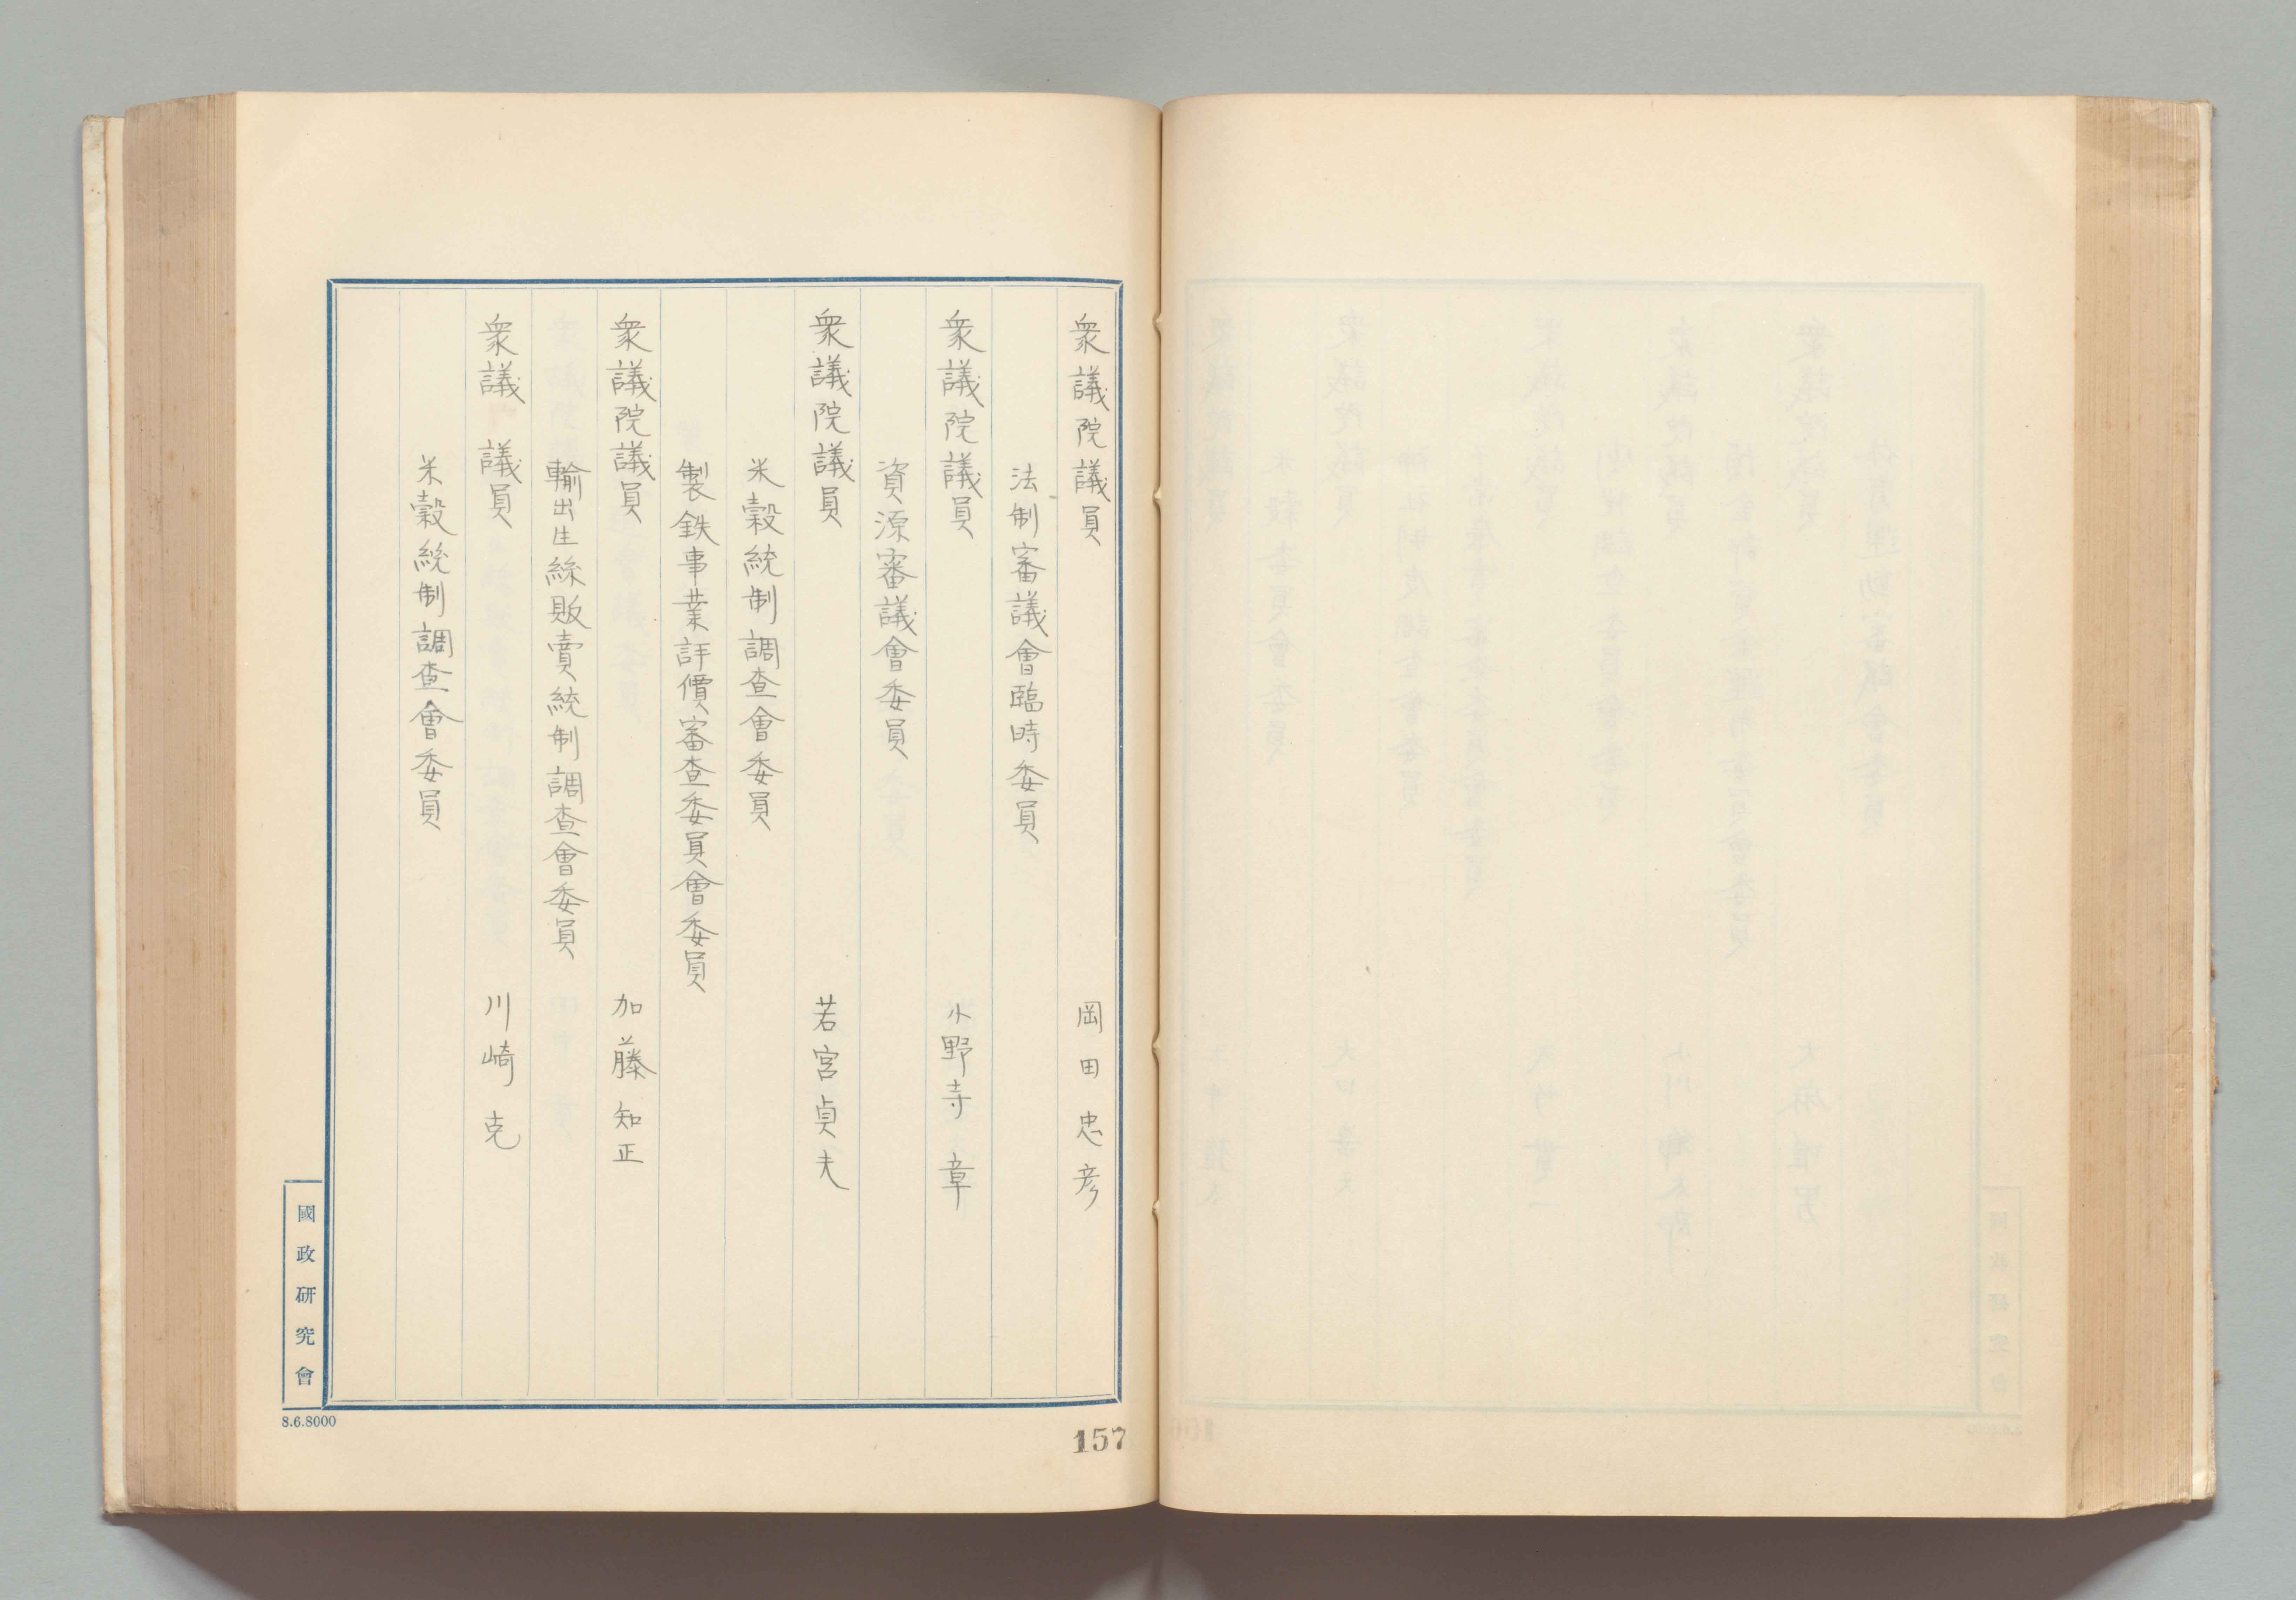 衆議院議員 岡田忠彦
法制審議會臨時委員
衆議院議員 小野寺章
資源審議會委員
衆議院議員 若宮貞夫
米穀統制調査會委員
製鉄事業評價審査委員會委員
衆議院議員 加藤知正
輸出生絲販賣統制調査會委員
衆議 議員 川崎克
米穀統制調査會委員
國政研究會
8.6.8000
157